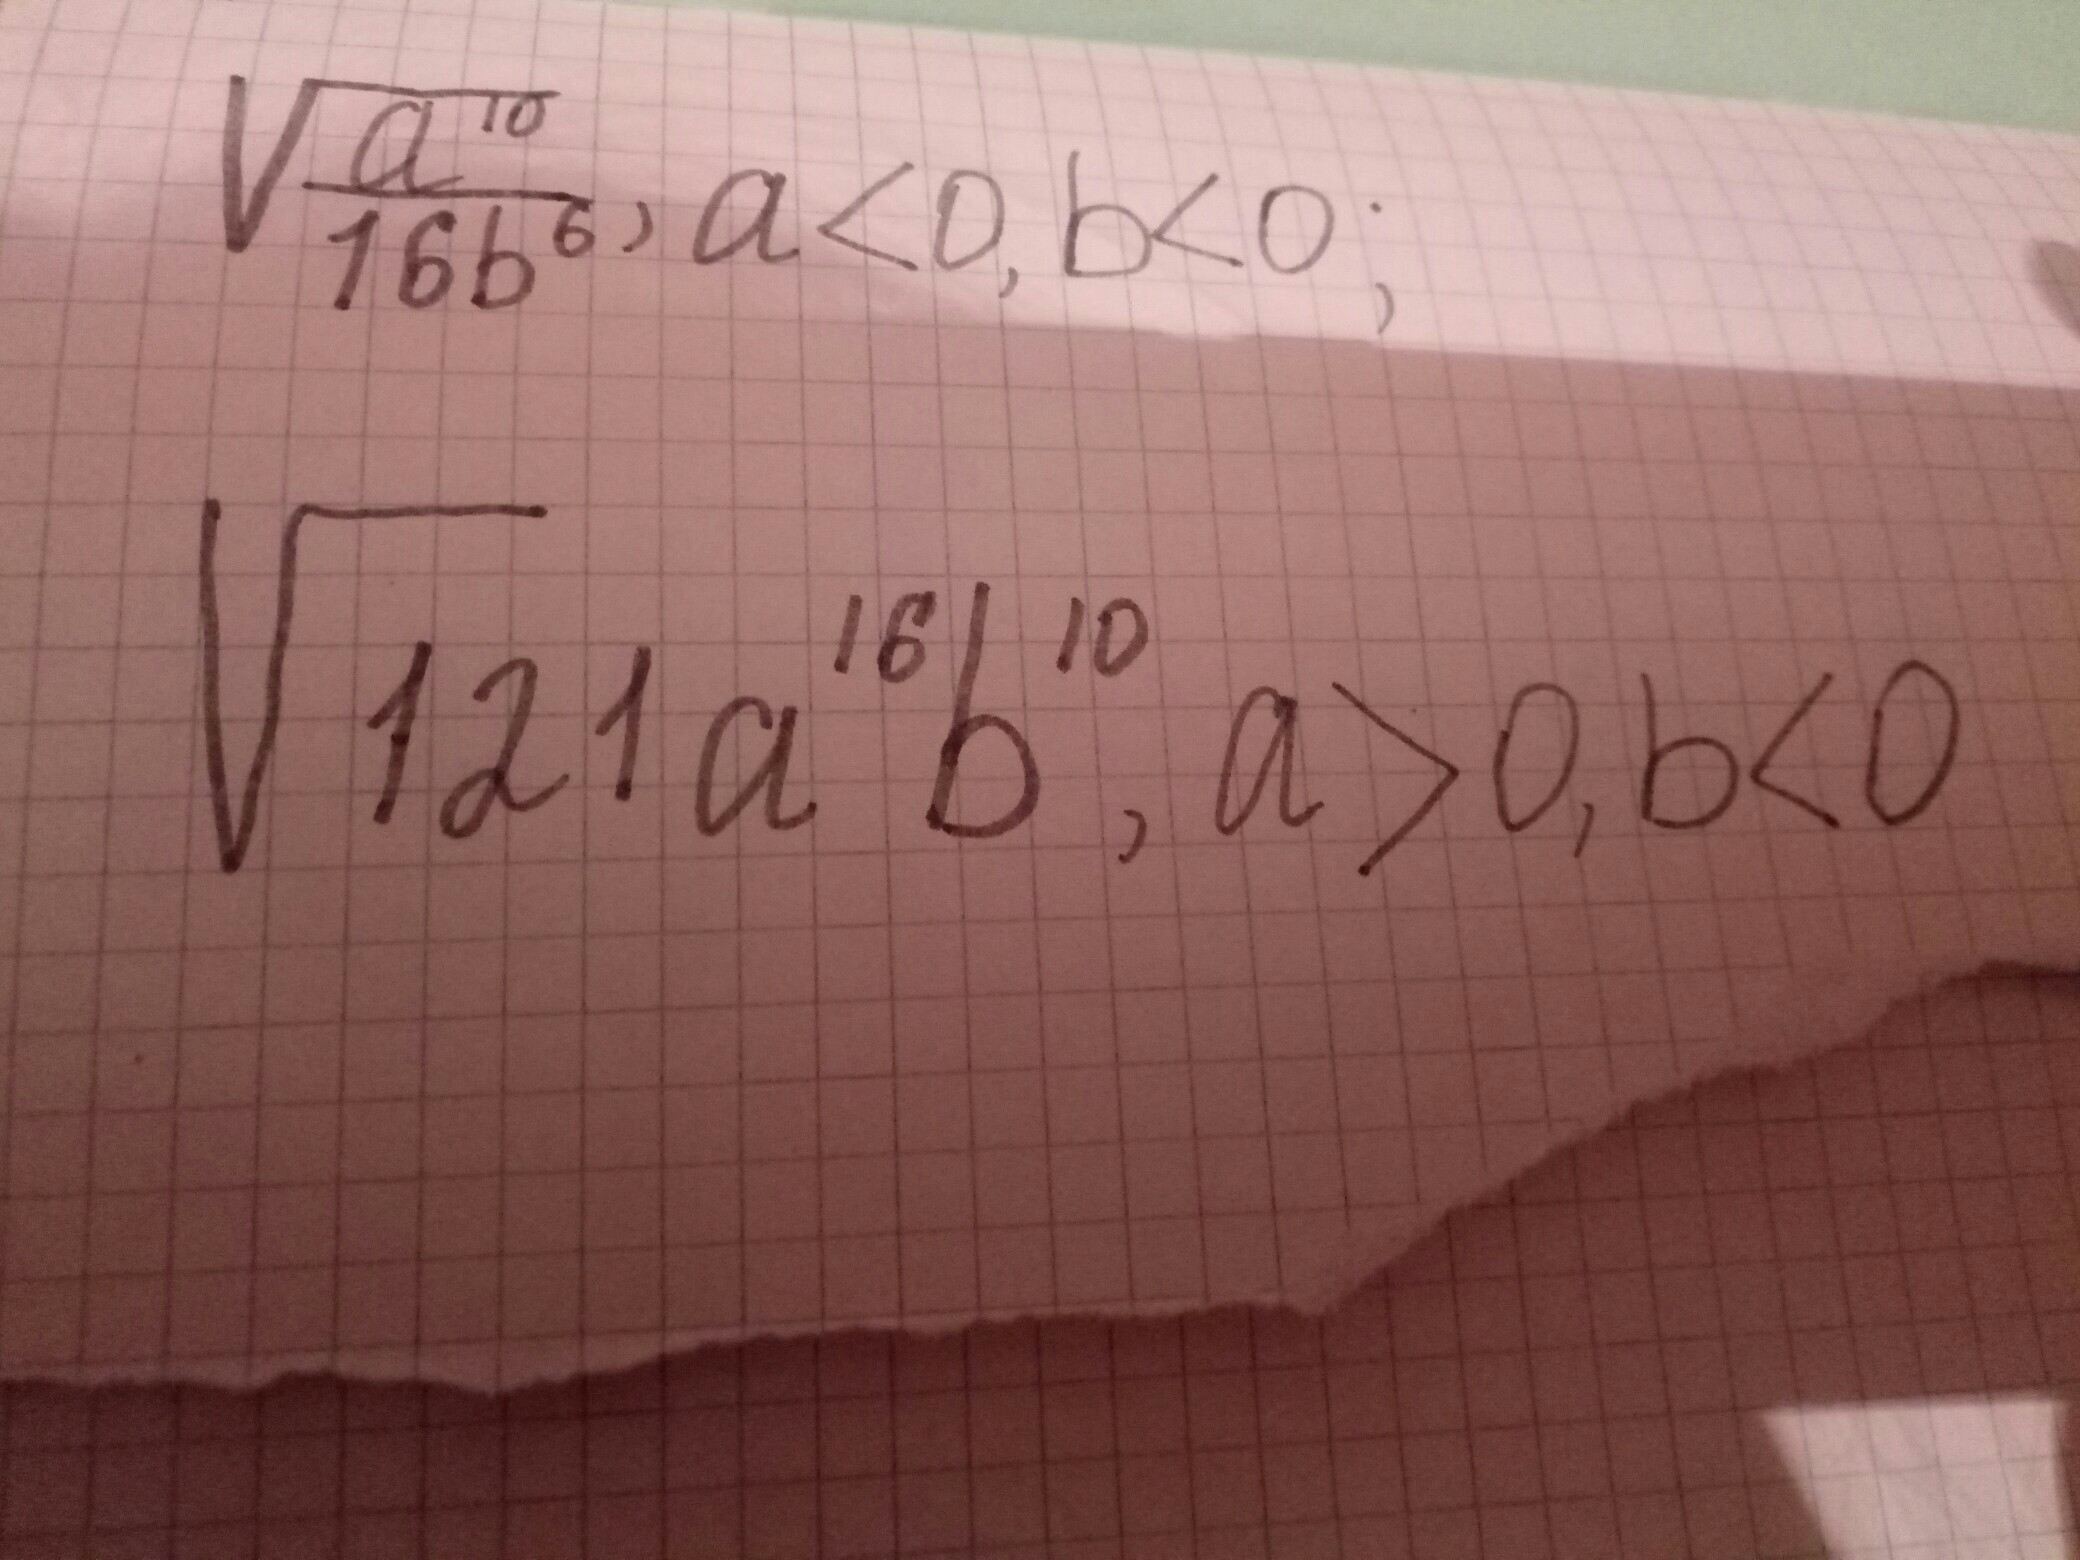 √(a¹⁰/16b⁶), a<0, b<0;
√121a¹⁶b¹⁰, a>0, b<0